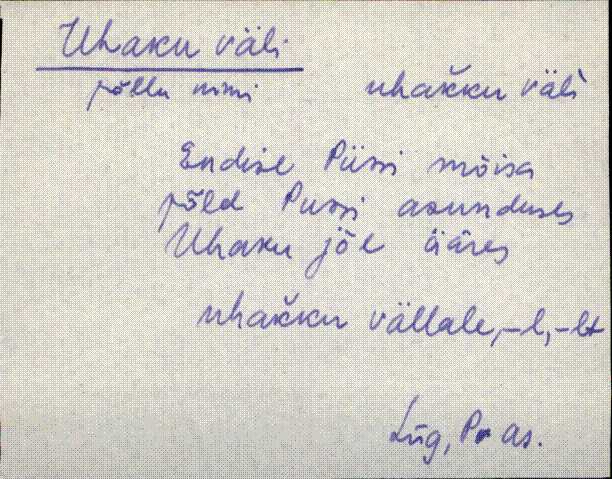 Uhaku väli
põllu nimi uhakku väli
Endise Püssi mõisa
põld Pussi asunduses
Uhaku jõe ääres
uhakku vällale, -l, -lt
Lüg, Pr as.